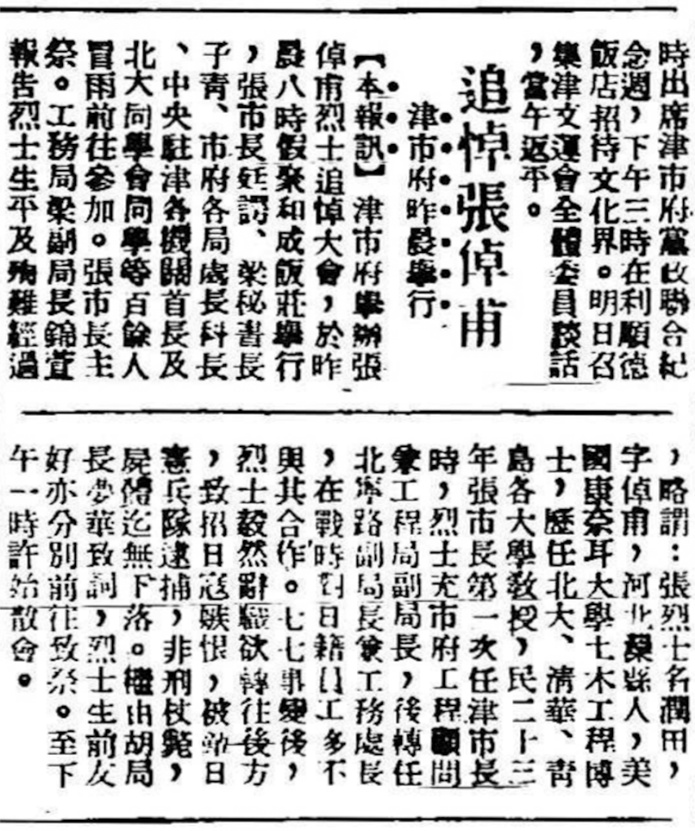 時出席津市府黨政聯合紀
念週，下午三時在利順德
飯店招待文化界。明日召
集津文運會全體委員談話
，當午返平。
追悼張倬甫
津市府昨晨舉行
【本報訊】津市府舉辦張
倬甫烈士追悼大會，於昨
晨八時假聚和成飯莊舉行
，張市長廷諤、梁秘書長
子青、市府各局處長科長
、中央駐津各機關首長及
北大同學會同學等百餘人
冒雨前往參加。張市長主
祭。工務局梁副局長錦萱
報告烈士生平及殉難經過
，略謂：張烈士名潤田，
字倬甫，河北縣人，美
國康奈耳大學土木工程博
士，歷任北大、清華、青
島各大學教授，民二十三
年張市長第一次任津市長
時，烈士充市府工程顧問
兼工程局副局長，後轉任
北寧路副局長兼工務處長
，在戰時對日籍員工多不
與其合作。七七事變後，
烈士毅然辭職欲轉往後方
，致招日寇嫉恨，被站日
憲兵隊逮捕，非刑杖斃，
屍體迄無下落。繼由胡局
長夢華致詞，烈士生前友
好亦分別前往致祭。至下
午一時許始散會。